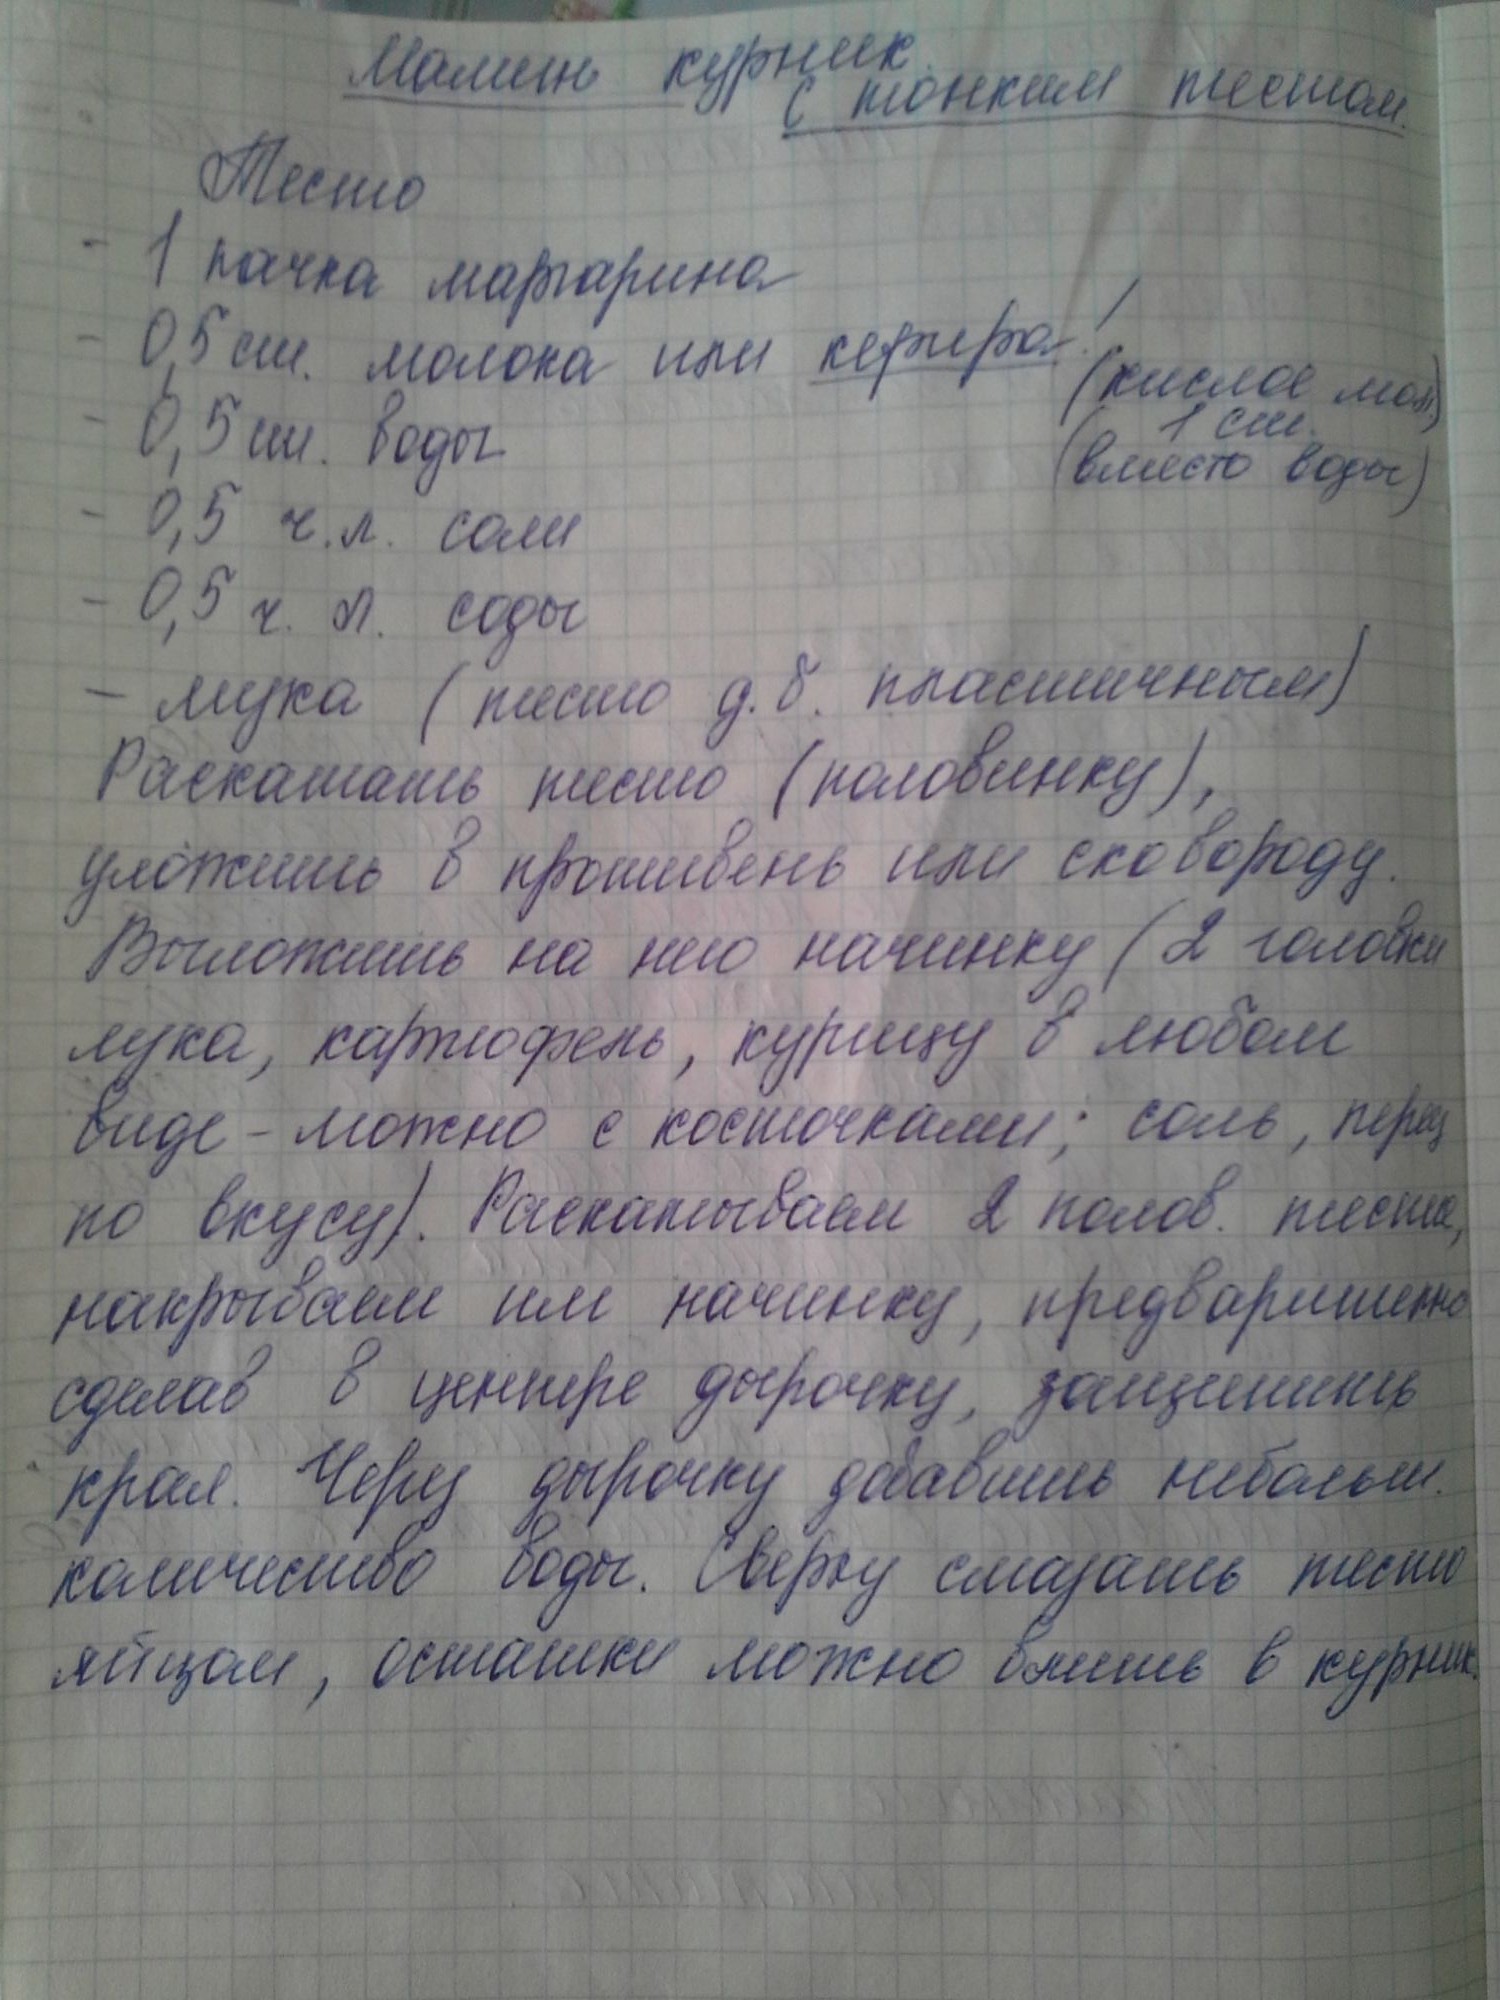 Мамин курник
с тонким тестом.
Тесто
- 1 пачка маргарина
- 0,5 ст. молока или кефира!
(кислое мол.)
1 ст.
(вместо воды)
- 0,5 ст. воды
- 0,5 ч.л. соли
- 0,5 ч. л. соды
- мука (тесто д.б. пластичным)
Раскатать тесто (половинку),
уложить в противень или сковороду.
Выложить на него начинку (2 головки
лука, картофель, курицу в любом
виде - можно с косточками; соль, перец
по вкусу). Раскатываем 2 полов. теста,
накрываем им начинку, предварительно
сделав в центре дырочку, защипить
края. Через дырочку добавить небольш.
количество воды. Сверху смазать тесто
яйцом, остатки можно влить в курник.